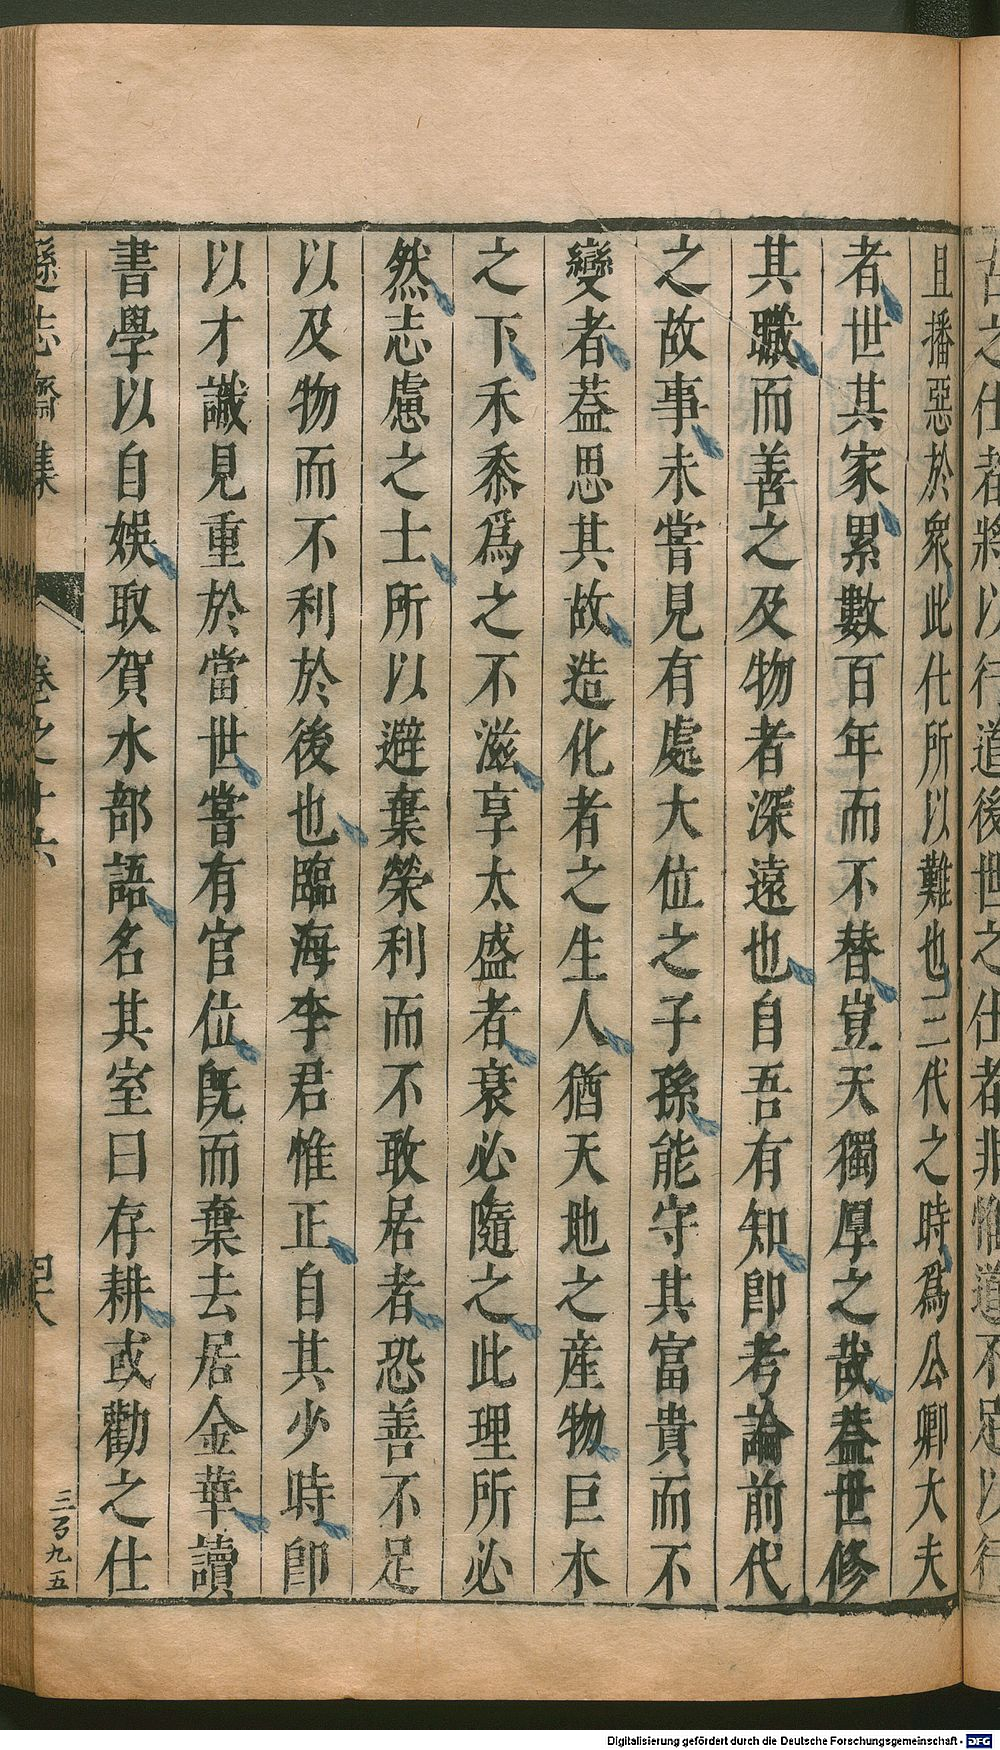 古之仕者將以行道後世之仕者非惟道不足以行
且播惡於衆此仕所以難也三代之時爲公卿大夫
者世其家累數百年而不替豈天獨厚之哉葢世修
其職而善之及物者深遠也自吾有知卽考論前代
之故事未嘗見有處大位之子孫能守其富貴而不
變者葢思其故造化者之生人猶天地之産物巨木
之下禾黍爲之不滋享太盛者衰必隨之此理所必
然志慮之士所以避棄榮利而不敢居者恐善不足
以及物而不利於後也臨海李君惟正自其少時卽
以才識見重於當世嘗有官位旣而棄去居金華讀
書學以自娛取賀水部語名其室曰存耕或勸之仕
遜志齋集 卷之十六 四十八
三百九五
Digitalisierung gefördert durch die Deutsche Forschungsgemeinschaft - DFG